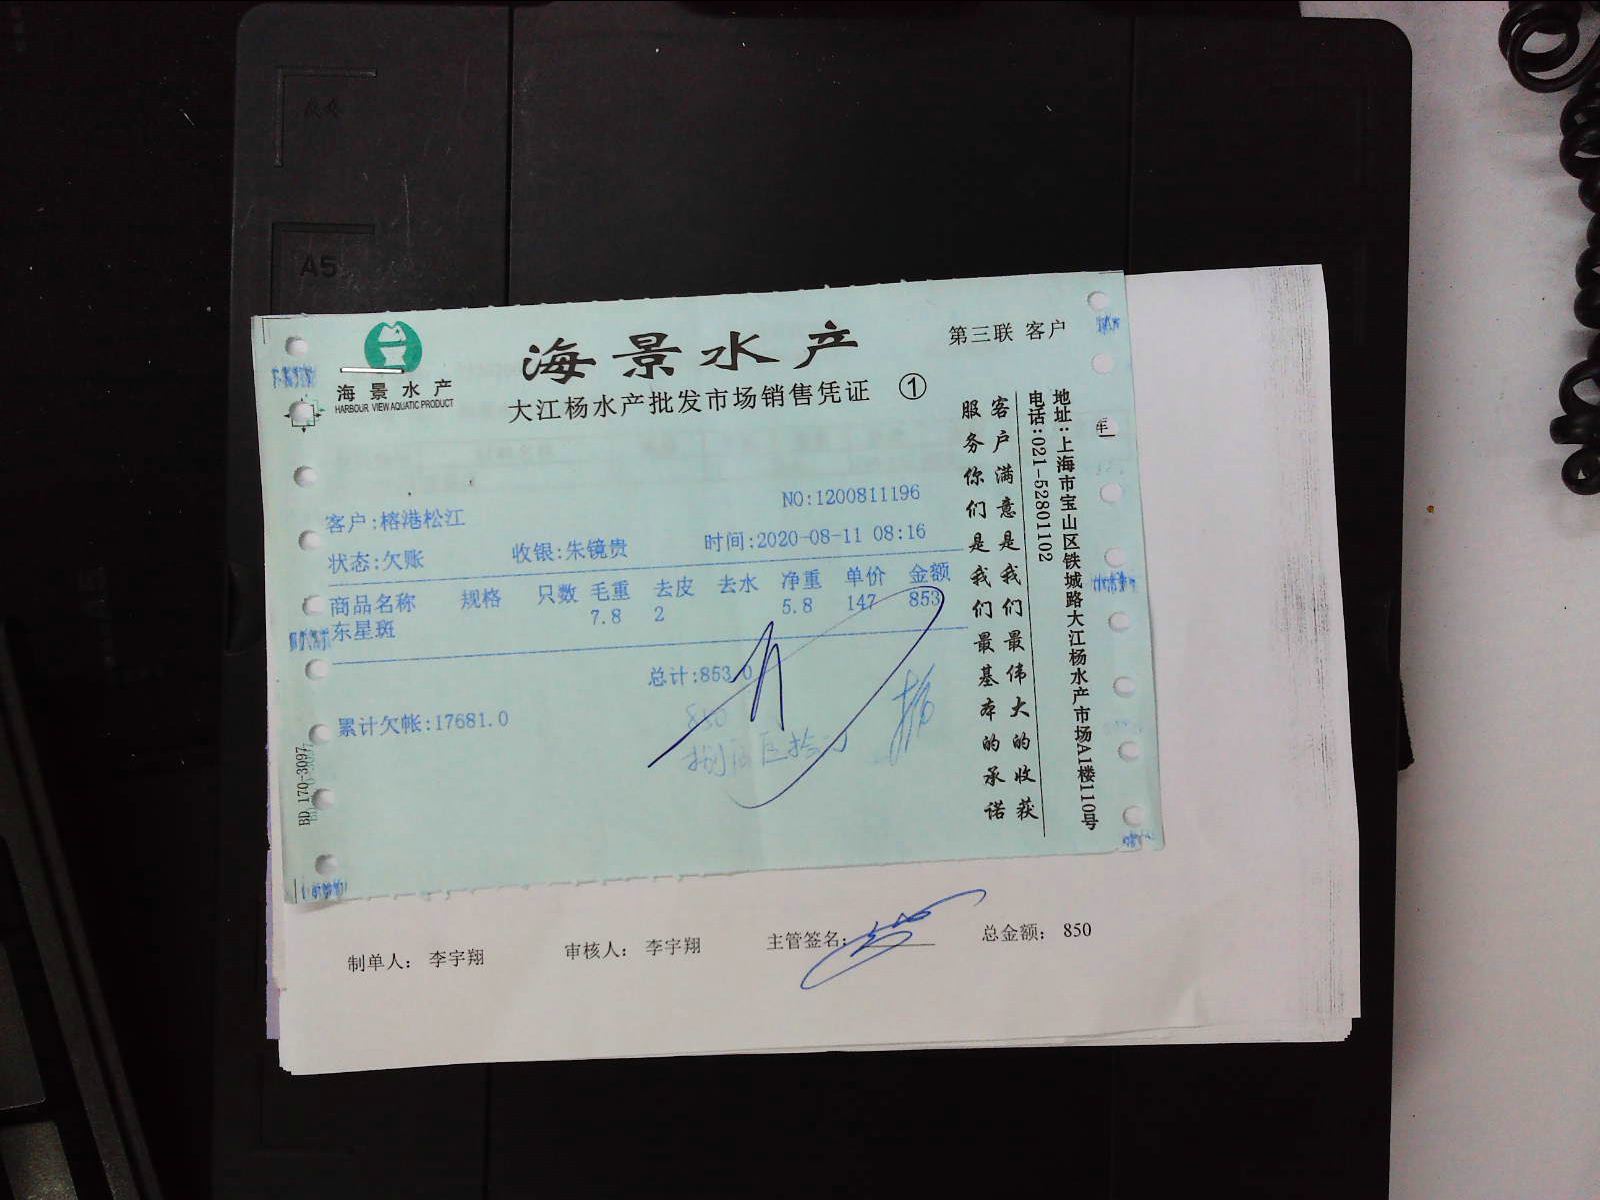 A5
海景水产
HARBOUR VIEW AQUATIC PRODUCT
海景水产
大江杨水产批发市场销售凭证 ①
第三联 客户
NO:1200811196
客户:榕港松江
状态:欠账 收银:朱镜贵 时间:2020-08-11 08:16
商品名称 规格 只数 毛重 去皮 去水 净重 单价 金额
东星斑 7.8 2 5.8 147 853
总计:853.0
累计欠帐:17681.0
850
客户满意是我们最伟大的收获
服务你们是我们最基本的承诺
地址:上海市宝山区铁城路大江杨水产市场A1楼110号
电话:021-52801102
BD 170-3097
制单人: 李宇翔 审核人: 李宇翔 主管签名: 总金额: 850